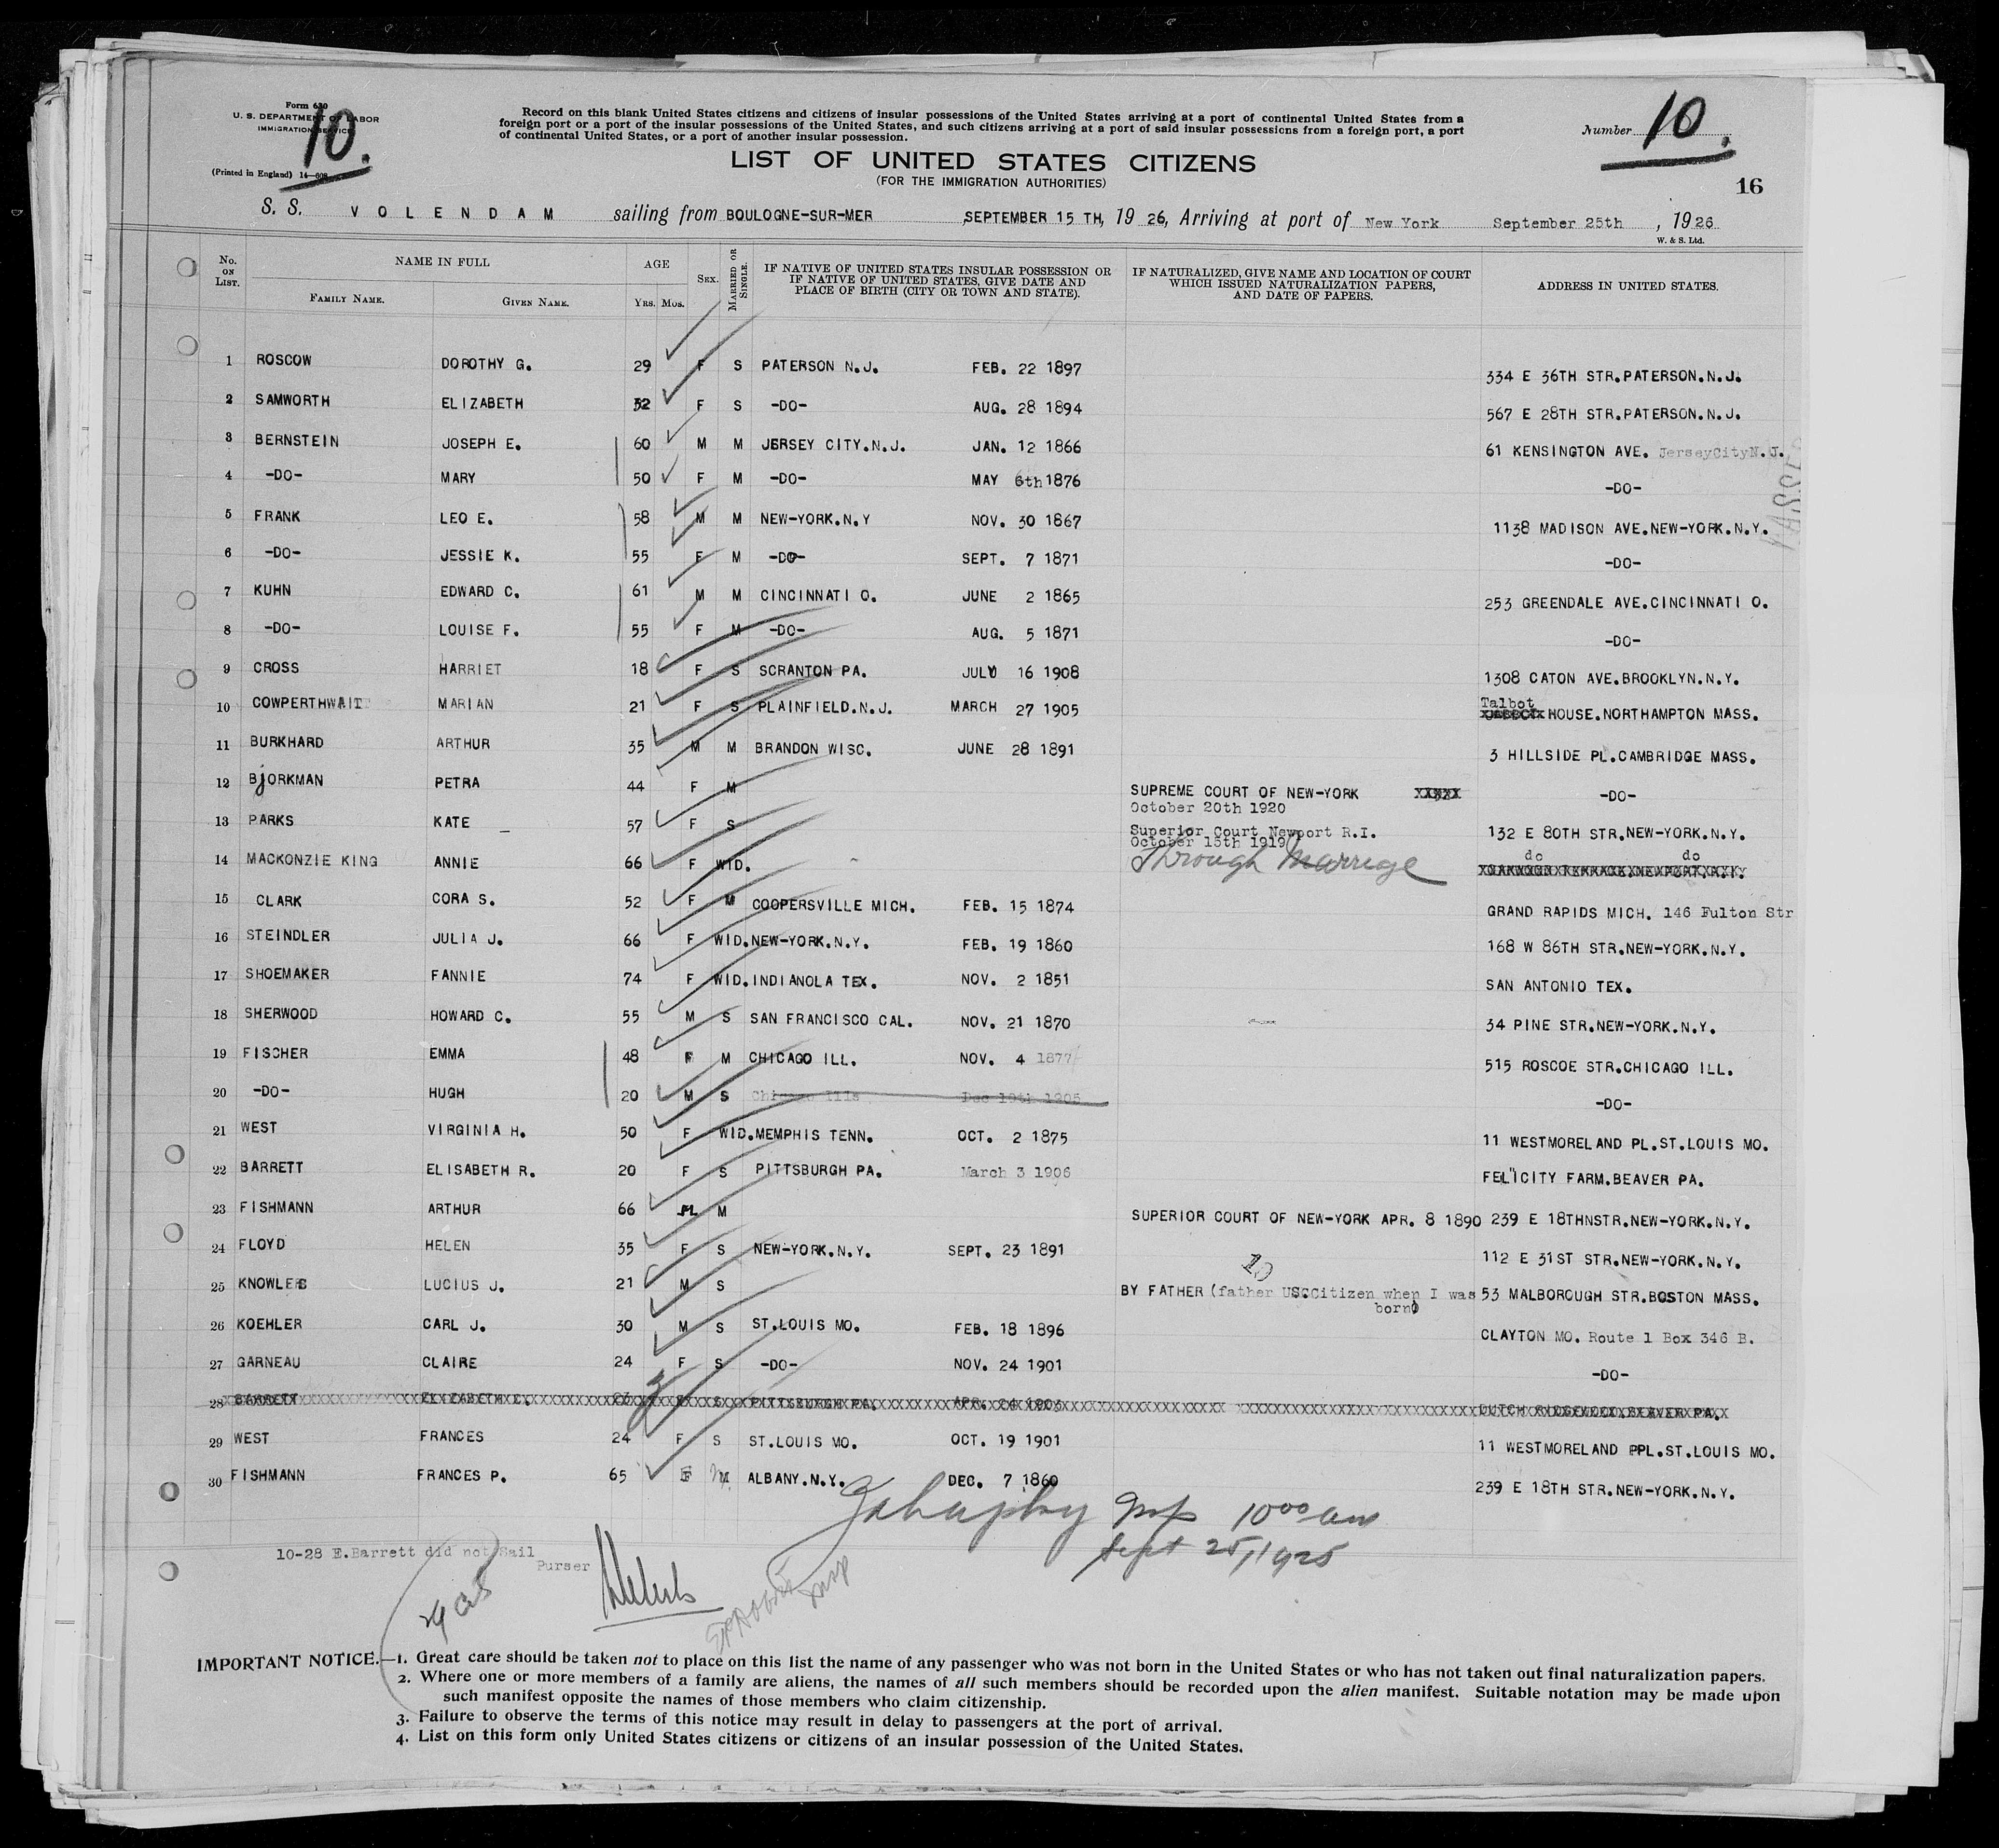 Form 630
U. S. DEPARTMENT OF LABOR
IMMIGRATION SERVICE
10.
(Printed in England) 14—608
Record on this blank United States citizens and citizens of insular possessions of the United States arriving at a port of continental United States from a
foreign port or a port of the insular possessions of the United States, and such citizens arriving at a port of said insular possessions from a foreign port, a port
of continental United States, or a port of another insular possession.
Number 10.
LIST OF UNITED STATES CITIZENS
(FOR THE IMMIGRATION AUTHORITIES)
16
S. S. VOLENDAM sailing from BOULOGNE-SUR-MER ,SEPTEMBER 15 TH, 19 26, Arriving at port of New York September 25th , 19 26
W. & S. Ltd.
No. ON LIST. NAME IN FULL AGE SEX. MARRIED OR SINGLE. IF NATIVE OF UNITED STATES INSULAR POSSESSION OR IF NATIVE OF UNITED STATES, GIVE DATE AND PLACE OF BIRTH (CITY OR TOWN AND STATE). IF NATURALIZED, GIVE NAME AND LOCATION OF COURT WHICH ISSUED NATURALIZATION PAPERS, AND DATE OF PAPERS. ADDRESS IN UNITED STATES.
FAMILY NAME. GIVEN NAME. YRS. MOS.
1 ROSCOW DOROTHY G. 29 F S PATERSON N.J. FEB. 22 1897 334 E 36TH STR.PATERSON.N.J.
2 SAMWORTH ELIZABETH 32 F S -DO- AUG. 28 1894 567 E 28TH STR.PATERSON.N.J.
3 BERNSTEIN JOSEPH E. 60 M M JERSEY CITY.N.J. JAN. 12 1866 61 KENSINGTON AVE. JerseyCityN.J.
4 -DO- MARY 50 F M -DO- MAY 6th 1876 -DO-
5 FRANK LEO E. 58 M M NEW-YORK.N.Y NOV. 30 1867 1138 MADISON AVE.NEW-YORK.N.Y.
6 -DO- JESSIE K. 55 F M -DO- SEPT. 7 1871 -DO-
7 KUHN EDWARD C. 61 M M CINCINNATI O. JUNE 2 1865 253 GREENDALE AVE.CINCINNATI O.
8 -DO- LOUISE F. 55 F M -DO- AUG. 5 1871 -DO-
9 CROSS HARRIET 18 F S SCRANTON PA. JULY 16 1908 1308 CATON AVE.BROOKLYN.N.Y.
10 COWPERTHWAIT MARIAN 21 F S PLAINFIELD.N.J. MARCH 27 1905 Talbot HOUSE.NORTHAMPTON MASS.
11 BURKHARD ARTHUR 35 M M BRANDON WISC. JUNE 28 1891 3 HILLSIDE PL.CAMBRIDGE MASS.
12 BJORKMAN PETRA 44 F M SUPREME COURT OF NEW-YORK XXXXX -DO-
October 20th 1920
13 PARKS KATE 57 F S Superior Court Newport R.I. 132 E 80TH STR.NEW-YORK.N.Y.
October 15th 1919
14 MACKONZIE KING ANNIE 66 F WID. Through Marriage do do
15 CLARK CORA S. 52 F M COOPERSVILLE MICH. FEB. 15 1874 GRAND RAPIDS MICH. 146 Fulton Str
16 STEINDLER JULIA J. 66 F WID. NEW-YORK.N.Y. FEB. 19 1860 168 W 86TH STR.NEW-YORK.N.Y.
17 SHOEMAKER FANNIE 74 F WID. INDIANOLA TEX. NOV. 2 1851 SAN ANTONIO TEX.
18 SHERWOOD HOWARD C. 55 M S SAN FRANCISCO CAL. NOV. 21 1870 34 PINE STR.NEW-YORK.N.Y.
19 FISCHER EMMA 48 F M CHICAGO ILL. NOV. 4 1877 515 ROSCOE STR.CHICAGO ILL.
20 -DO- HUGH 20 M S Chicago Ills Dec 19th 1905 -DO-
21 WEST VIRGINIA H. 50 F WID. MEMPHIS TENN. OCT. 2 1875 11 WESTMORELAND PL.ST.LOUIS MO.
22 BARRETT ELISABETH R. 20 F S PITTSBURGH PA. March 3 1906 FEL"ICITY FARM.BEAVER PA.
23 FISHMANN ARTHUR 66 M M SUPERIOR COURT OF NEW-YORK APR. 8 1890 239 E 18THNSTR.NEW-YORK.N.Y.
24 FLOYD HELEN 35 F S NEW-YORK.N.Y. SEPT. 23 1891 112 E 31ST STR.NEW-YORK.N.Y.
10
25 KNOWLES LUCIUS J. 21 M S BY FATHER (father USCCitizen when I was born) 53 MALBOROUGH STR.BOSTON MASS.
26 KOEHLER CARL J. 30 M S ST.LOUIS MO. FEB. 18 1896 CLAYTON MO. Route 1 Box 346 B.
27 GARNEAU CLAIRE 24 F S -DO- NOV. 24 1901 -DO-
28 BARRETT ELIZABETH C. 23 F S PITTSBURGH PA. APR. 24 1903 DUTCH RIDGEWOOD.BEAVER PA.
29 WEST FRANCES 24 F S ST.LOUIS MO. OCT. 19 1901 11 WESTMORELAND PPL.ST.LOUIS MO.
30 FISHMANN FRANCES P. 65 F M ALBANY.N.Y. DEC. 7 1860 239 E 18TH STR.NEW-YORK.N.Y.
1000 am
Sept 25/1925
10-28 E.Barrett did not Sail
Purser
IMPORTANT NOTICE.—1. Great care should be taken not to place on this list the name of any passenger who was not born in the United States or who has not taken out final naturalization papers.
2. Where one or more members of a family are aliens, the names of all such members should be recorded upon the alien manifest. Suitable notation may be made upon
such manifest opposite the names of those members who claim citizenship.
3. Failure to observe the terms of this notice may result in delay to passengers at the port of arrival.
4. List on this form only United States citizens or citizens of an insular possession of the United States.